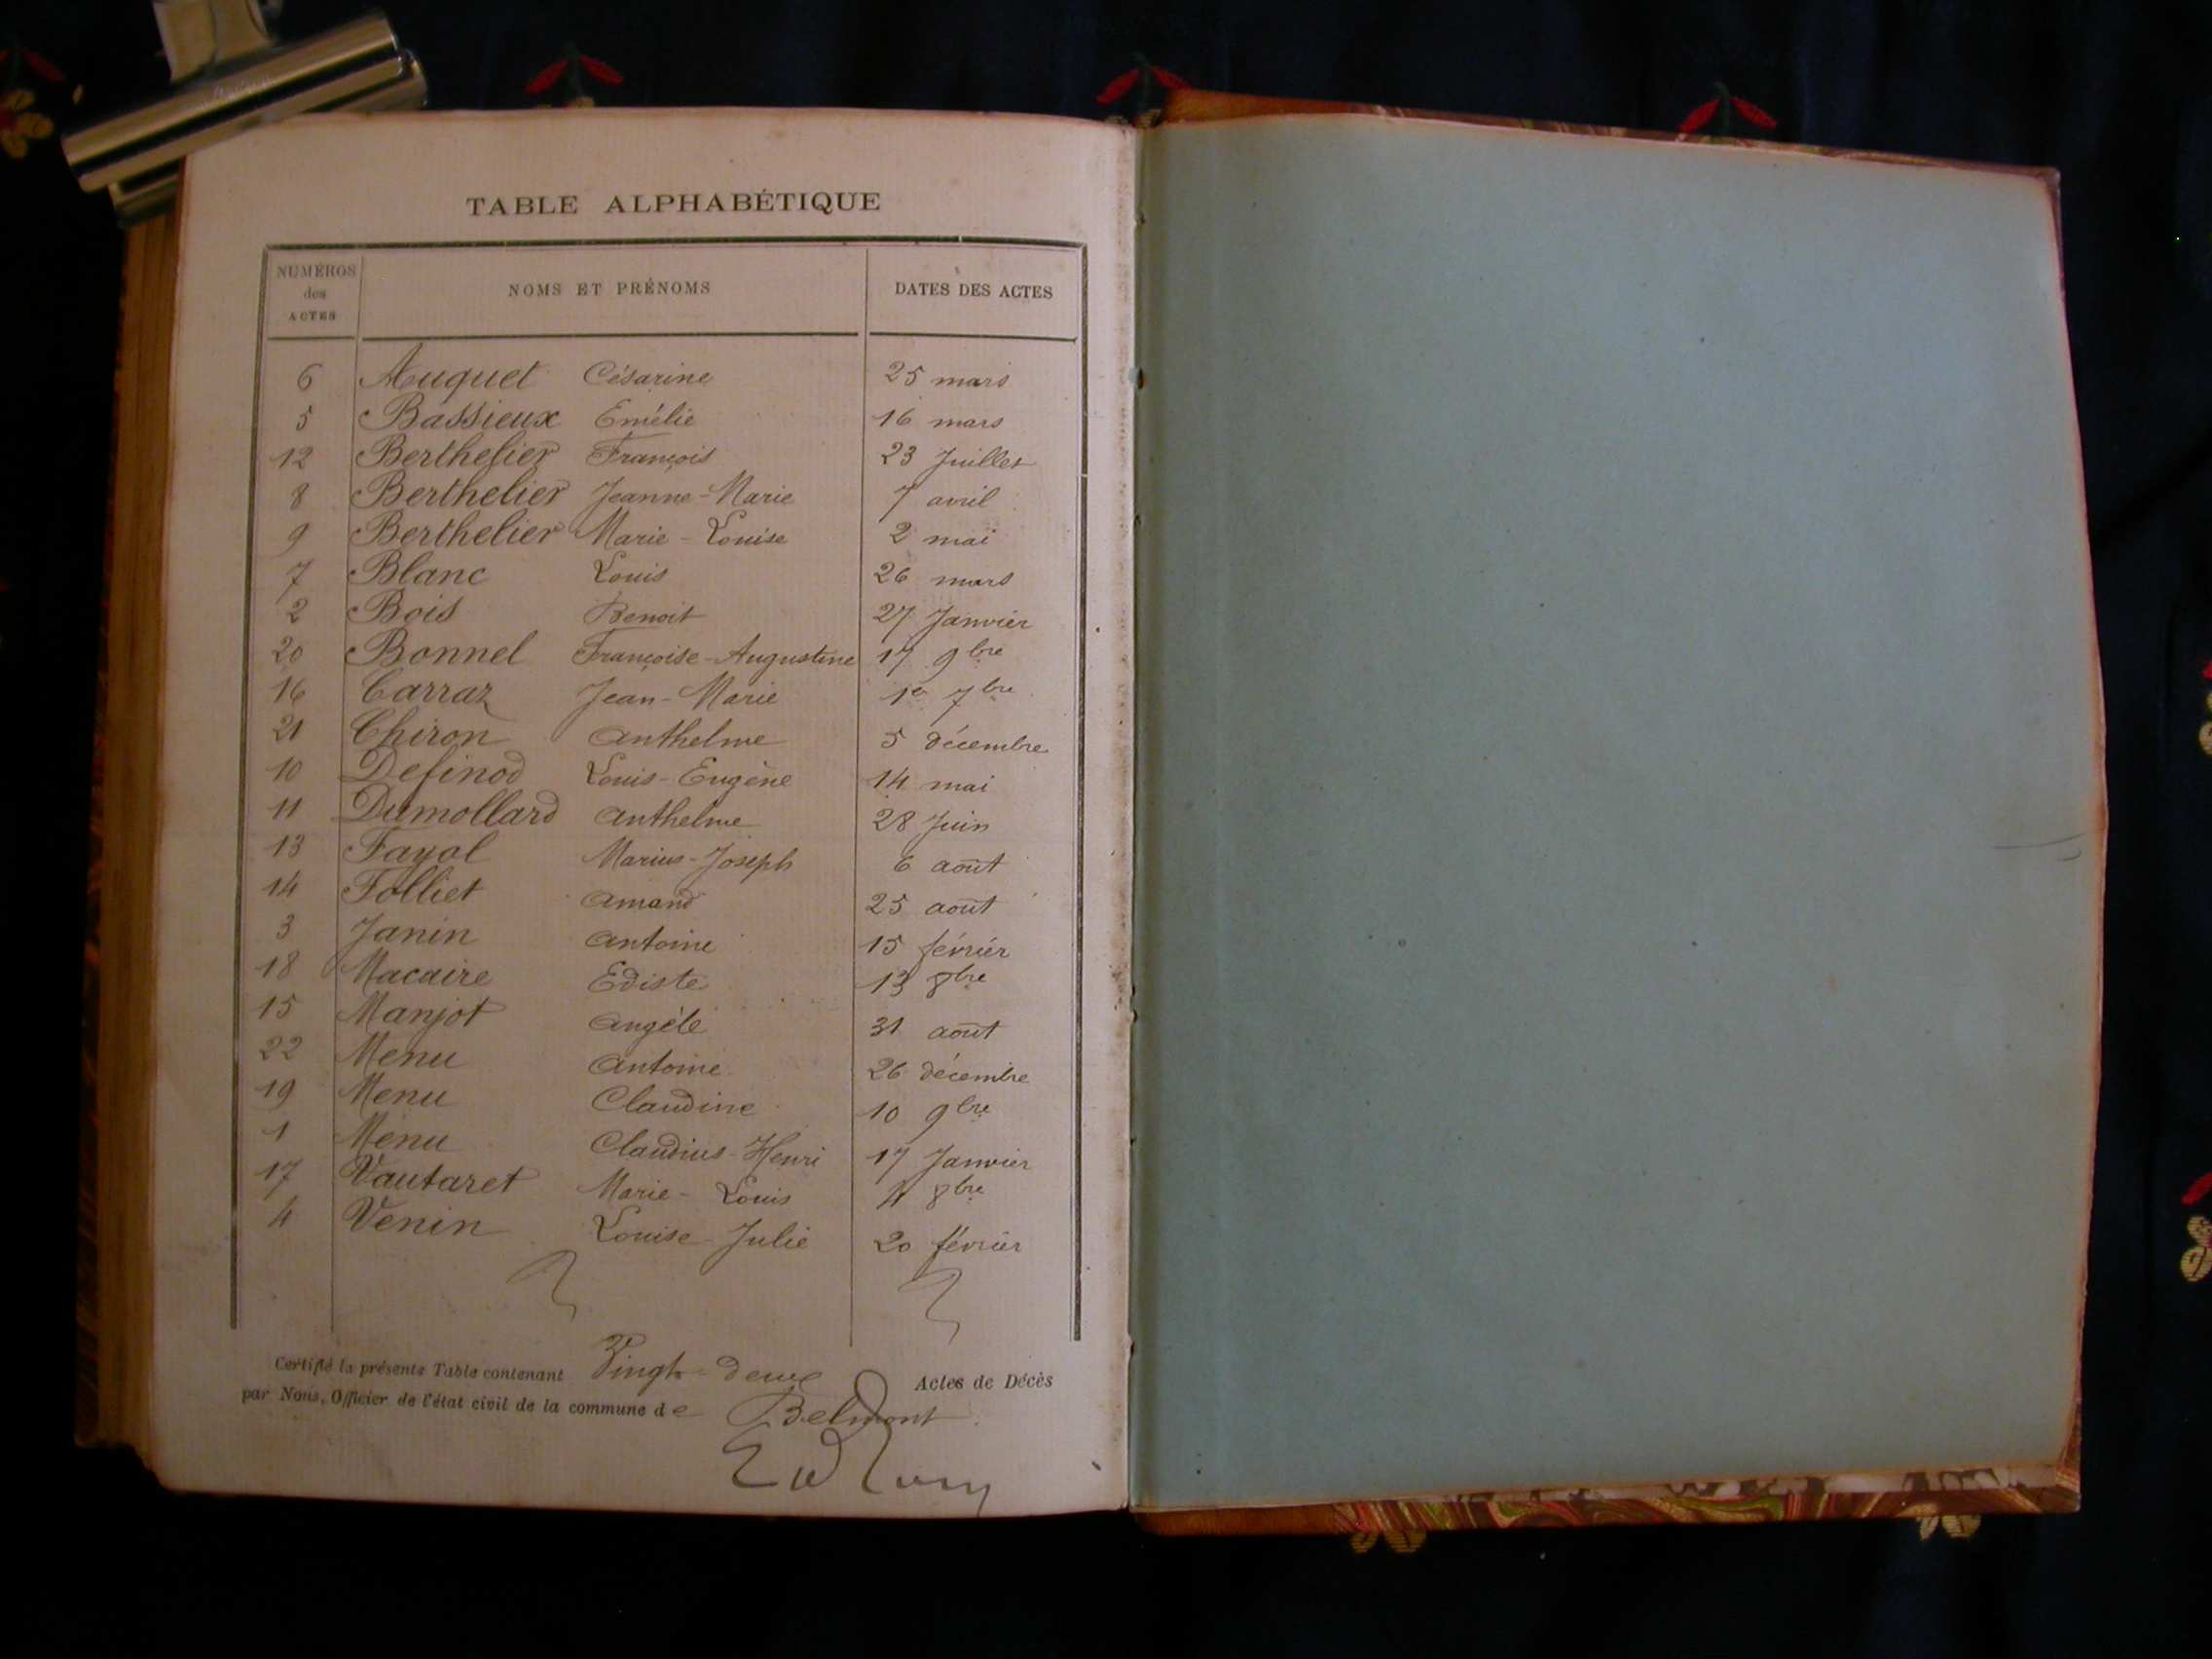 TABLE ALPHABÉTIQUE
NUMÉROS des ACTES NOMS ET PRÉNOMS DATES DES ACTES
6 Auguet Césarine 25 mars
5 Bassieux Emélie 16 mars
12 Berthelier François 23 Juillet
8 Berthelier Jeanne-Marie 7 avril
9 Berthelier Marie-Louise 2 mai
7 Blanc Louis 26 mars
2 Bois Benoit 27 Janvier
20 Bonnel Françoise-Augustine 17 9bre
16 Carraz Jean-Marie 1er 7bre
21 Chiron Anthelme 5 décembre
10 Definod Louis-Eugène 14 mai
11 Dumollard Anthelme 28 Juin
13 Fayol Marius-Joseph 6 août
14 Folliet Amand 25 août
3 Janin Antoine 15 février
18 Macaire Ediste 13 8bre
15 Manjot Angèle 31 août
22 Menu Antoine 26 décembre
19 Menu Claudine 10 9bre
1 Menu Claudius-Henri 17 Janvier
17 Vautaret Marie-Louis 4 8bre
4 Venin Louise Julie 20 février
Certifié la présente Table contenant Vingt-deux Actes de Décès
par Nous, Officier de l'état civil de la commune de Belmont